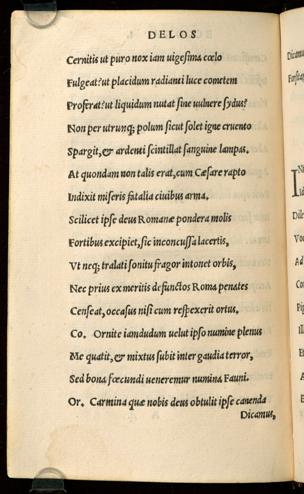 DELOS
Cernitis ut puro nox iam uigesima cœlo
Fulgeat? ut placidum radianti luce cometem
Proferat? ut liquidum nutat sine uulnere sydus?
Non per utrunq; polum sicut solet igne cruento
Spargit, & ardenti scintillat sanguine lampas.
At quondam non talis erat, cum Cæsare rapto
Indixit miseris fatalia ciuibus arma.
Scilicet ipse deus Romanæ pondera molis
Fortibus excipiet, sic inconcussa lacertis,
Vt neq; tralati sonitu fragor intonet orbis,
Nec prius ex meritis defunctos Roma penates
Censeat, occasus nisi cum respexerit ortus,
Co. Ornite iamdudum uelut ipso numine plenus
Me quatit, & mixtus subit inter gaudia terror,
Sed bona fœcundi ueneremur numina Fauni.
Or. Carmina quæ nobis deus obtulit ipse canenda
Dicamus,